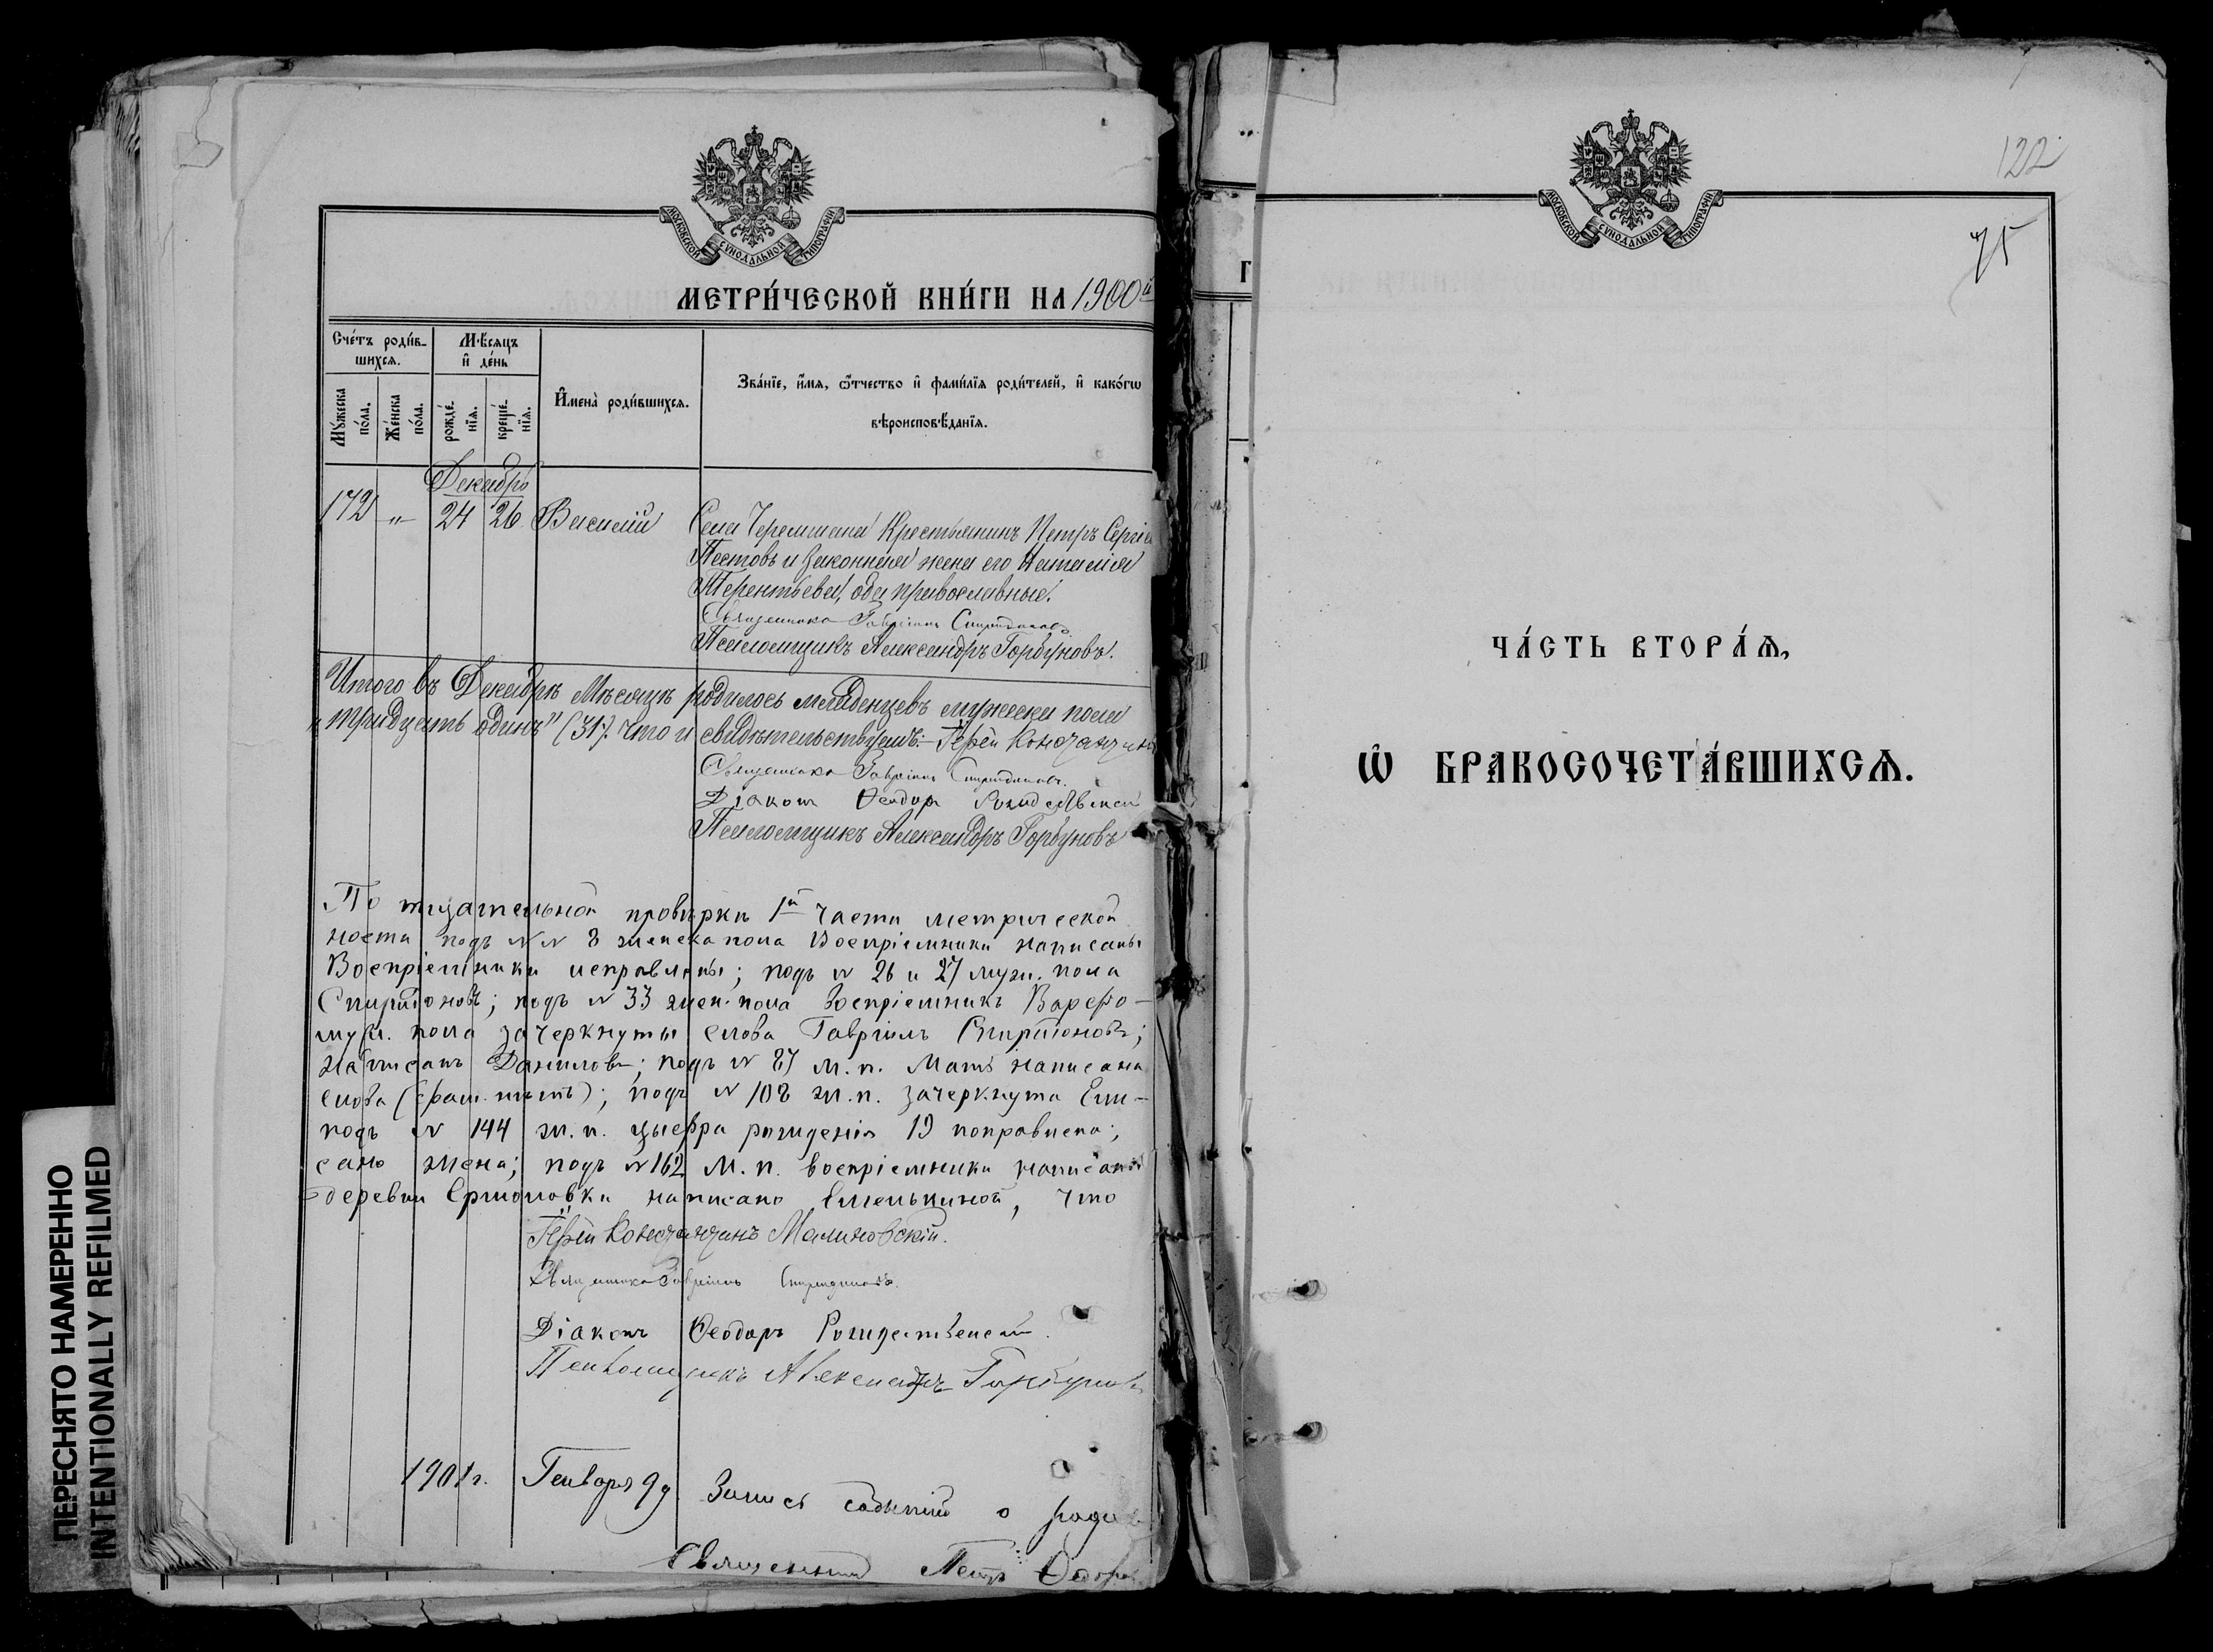 МОСКОВСКОЙ СѴНОДАЛЬНОЙ ТИПОГРАФІИ
МЕТРИ́ЧЕСКОЙ КНИ́ГИ НА 1900й
Сче́тъ роди́в-
шихсѧ.
Мѣ́сѧцъ
и҆ де́нь
Мꙋ́жеска
по́ла.
Же́нска
по́ла.
рожде́-
нїѧ.
креще́-
нїѧ.
И҆мена̀ роди́вшихсѧ.
Зва́нїе, и҆́мѧ, ѻ҆́тчество и҆ фами́лїѧ роди́телей, и҆ како́гѡ
вѣроисповѣ́данїѧ.
Декабрь
172 " 24 26 Василій
Села Черемшана Крестьянинъ Петръ Сергіе
Пестовъ и законная жена его Наталія
Терентьева, оба православные.
Священникъ Гавріилъ Спиридоновъ
Псаломщикъ Александръ Горбуновъ.
Итого въ Декабрѣ Мѣсяцѣ родилось младенцевъ мужеска пола
"тридцать одинъ" (31). Что и свидѣтельствуемъ:- Іерей Константинъ
Священникъ Гавріилъ Спиридоновъ.
Діаконъ Ѳеодоръ Рождественскій
Псаломщикъ Александръ Горбуновъ
По тщательной провѣркѣ 1й части метрической
ности подъ №№ 8 женска пола Воспріемники написаны
Воспріемники исправлены; подъ № 26 и 27 муж. пола
Спиридоновъ; подъ № 33 жен. пола воспріемникъ Варѳо-
муж. пола зачеркнуты слова Гавріилъ Спиридоновъ;
написанъ Даниловъ; подъ № 87 м. п. Мать написана
слова; подъ № 108 ж. п. зачеркнута Ели-
подъ № 144 ж. п. цыфра рожденія 19 поправлена;
сано жена; подъ № 162 м. п. воспріемники написаны
деревни Ермоловки написано Емелькиной, что
Іерей Константинъ Малиновскій.
Священникъ Гавріилъ Спиридоновъ.
Діаконъ Ѳеодоръ Рождественскій.
Псаломщикъ Александръ Горбуновъ
1901 г. Генваря 9 д. Запись событій о роди
Священникъ Петръ
122
75
МОСКОВСКОЙ СѴНОДАЛЬНОЙ ТИПОГРАФІИ
Г
ЧА́СТЬ ВТОРА́Ѧ,
Ѡ҆ БРАКОСОЧЕТА́ВШИХСѦ.
ПЕРЕСНЯТО НАМЕРЕННО
INTENTIONALLY REFILMED